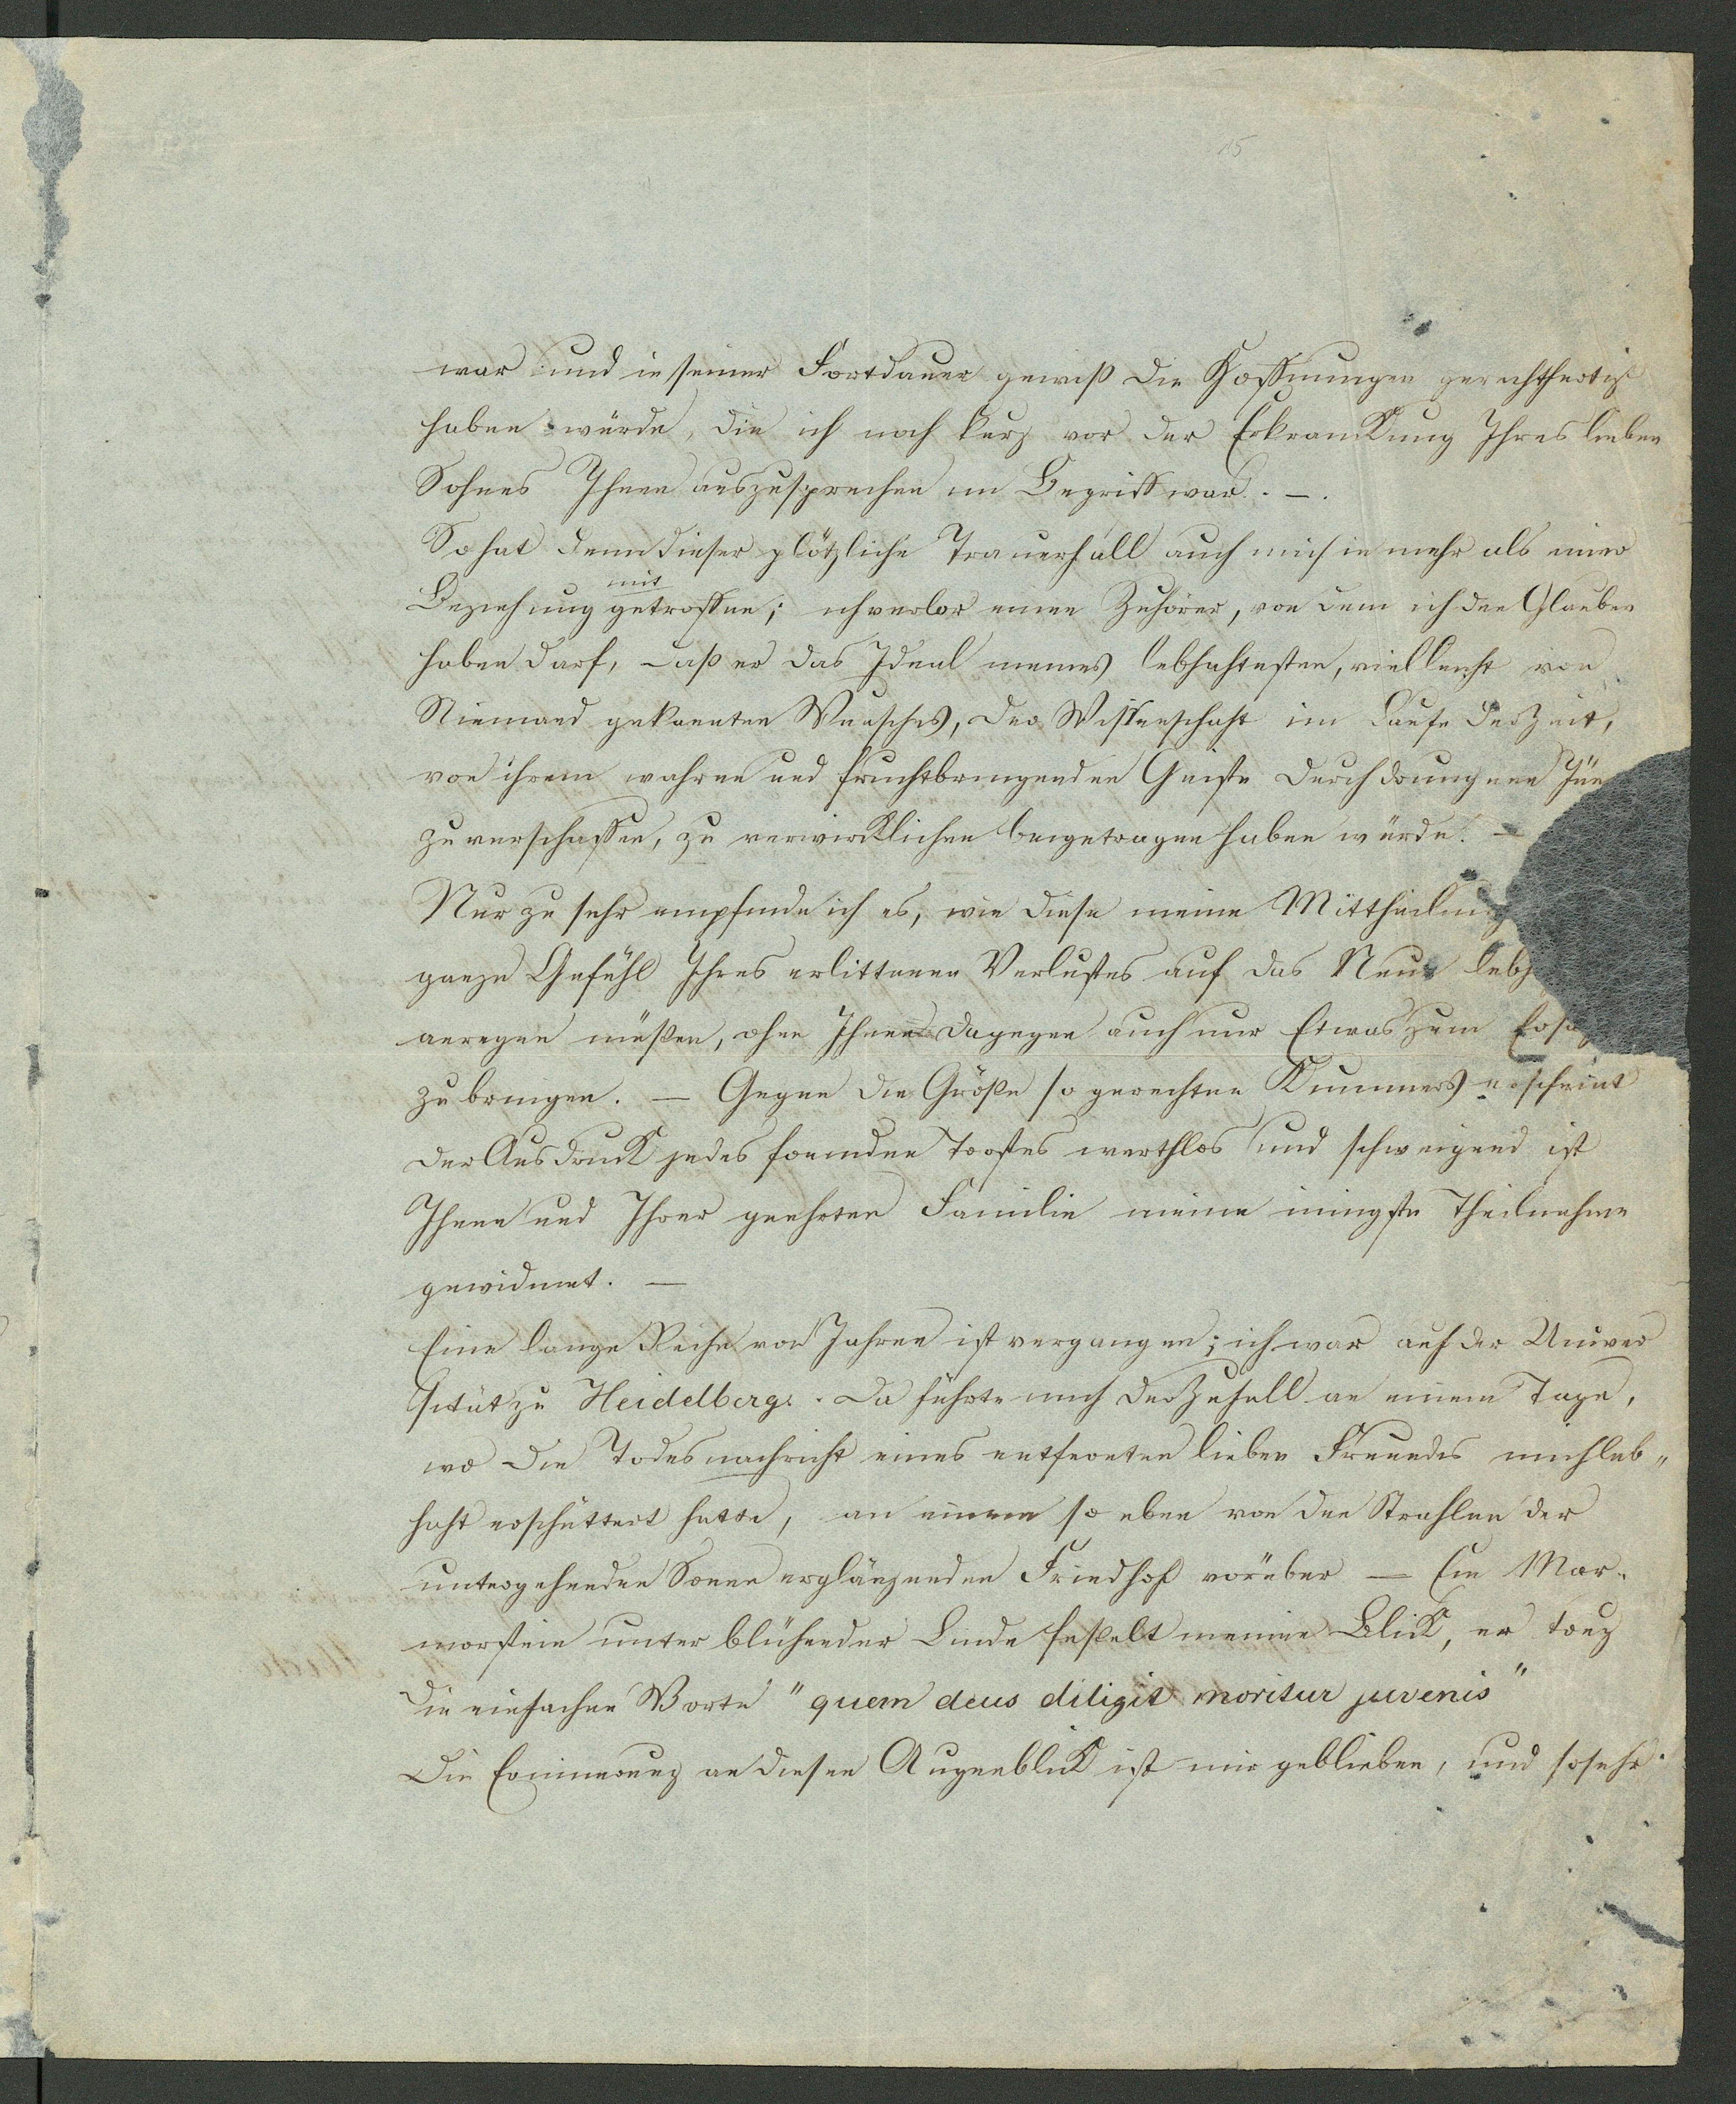 15
war und in seiner Fortdauer gewiß die Hoffnungen gerechtfertigt
haben würde, die ich noch kurz vor der Erkrankung Ihres lieben
Sohnes Ihnen auszusprechen im Begriff war. —.
So hat denn dieser plötzliche Trauerfall auch mich in mehr als einer
mit
Beziehung getroffen; ich verlor einen Zuhörer, von dem ich den Glauben
haben darf, daß er das Ideal meines lebhaftesten, vielleicht von
Niemand gekannten Wunsches, der Wissenschaft im Laufe der Zeit,
von ihrem wahren und fruchtbringenden Geiste durchdrungene Jün
zu verschaffen, zu verwirklichen beigetragen haben würde. —
Nur zu sehr empfinde ich es, wie diese meine Mittheilung
ganze Gefühl Ihres erlittenen Verlustes auf das Neue lebh
anregen müßen, ohne Ihnen dagegen auch nur Etwas zum Ersa
zu bringen. — Gegen die Größe so gerechten Kummers erscheint
der Ausdruck jedes fremden Trostes werthlos und schweigend ist
Ihnen und Ihrer geehrten Familie meine innigste Theilnahme
gewidmet. —
Eine lange Reihe von Jahren ist vergangen; ich war auf der Univer
sität zu Heidelberg. Da führte mich der Zufall an einem Tage,
wo die Todesnachricht eines entfernten lieben Freundes mich leb„
haft erschüttert hatte, an einem so eben von den Strahlen der
untergehenden Sonne erglänzenden Friedhof vorüber — Ein Mar-
morstein unter blühender Linde feßelt meinen Blick, er trug
die einfachen Worte "quem deus diligit moritur juvenis"
Die Erinnerung an diesen Augenblick ist mir geblieben, und so sehr